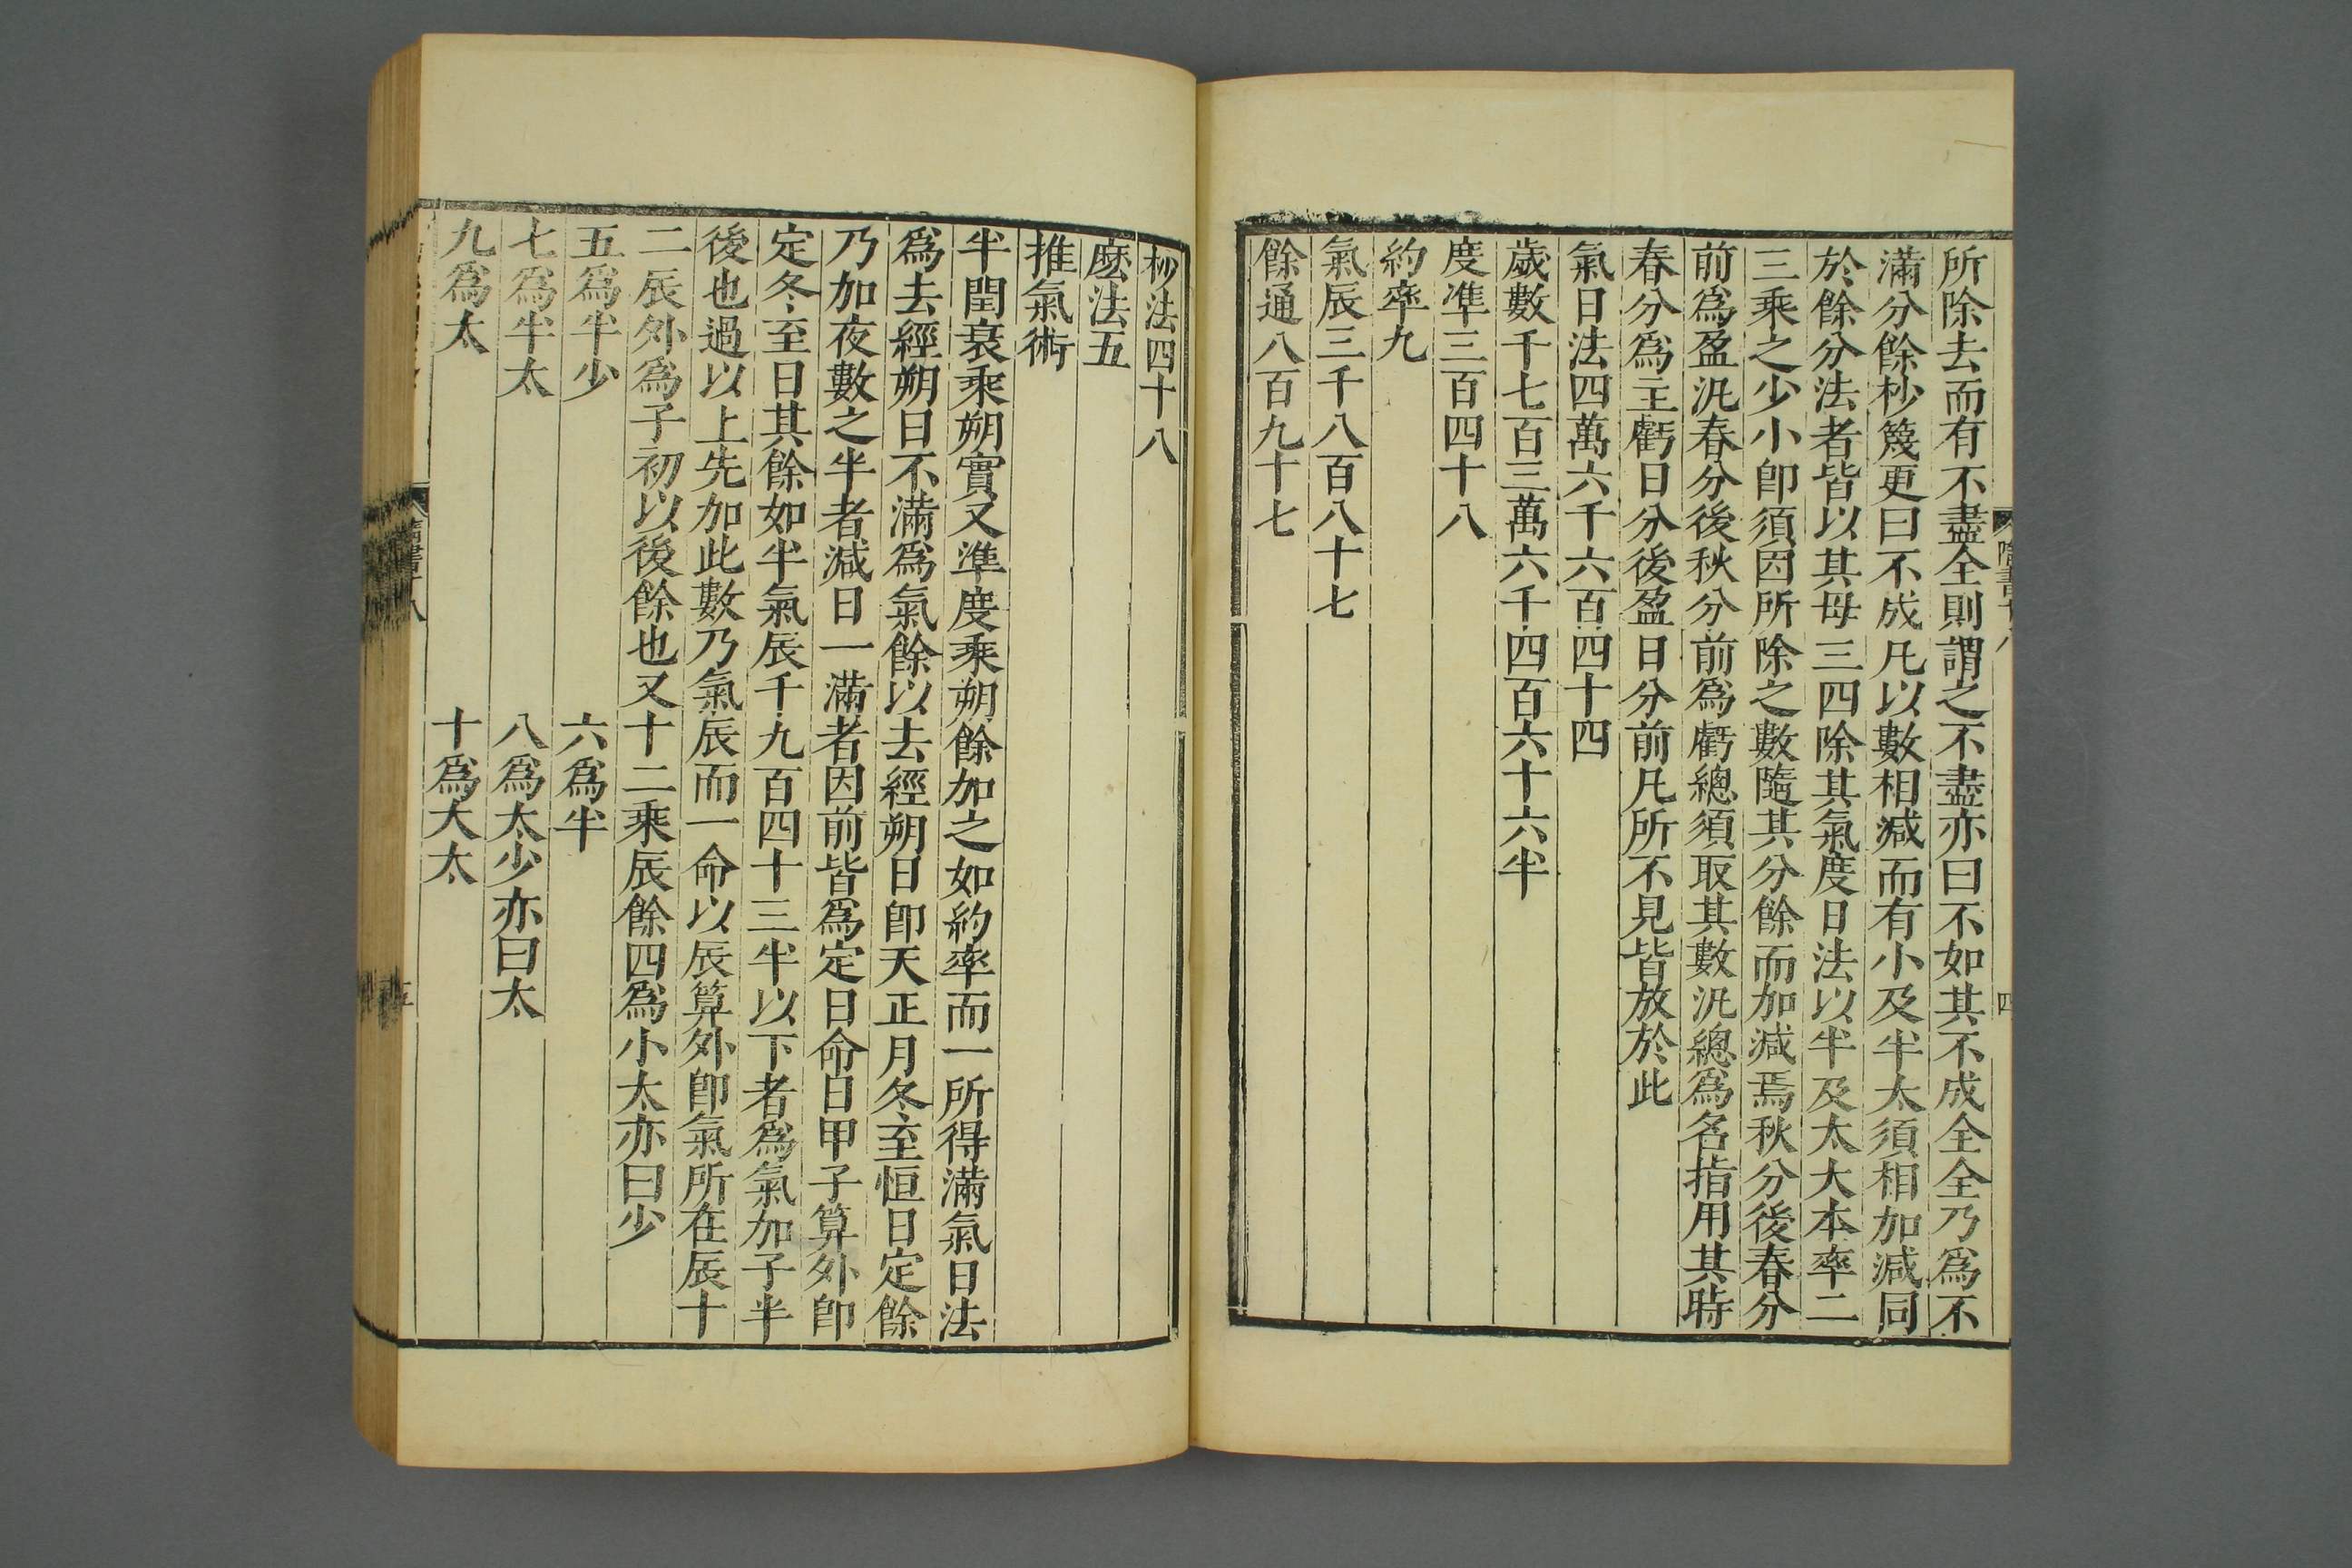 隋書十八
四
所除去而有不盡全則謂之不盡亦曰不如其不成全全乃爲不
滿分餘杪篾更曰不成凡以數相減而有小及半太須相加減同
於餘分法者皆以其母三四除其氣度日法以半及太大本率二
三乘之少小卽須因所除之數隨其分餘而加減焉秋分後春分
前爲盈汎春分後秋分前爲虧總須取其數汎總爲名指用其時
春分爲主虧日分後盈日分前凡所不見皆放於此
氣日法四萬六千六百四十四
歲數千七百三萬六千四百六十六半
度準三百四十八
約率九
氣辰三千八百八十七
餘通八百九十七
杪法四十八
麽法五
推氣術
半閏衰乘朔實又準度乘朔餘加之如約率而一所得滿氣日法
爲去經朔日不滿爲氣餘以去經朔日卽天正月冬至恒日定餘
乃加夜數之半者減日一滿者因前皆爲定日命日甲子算外卽
定冬至日其餘如半氣辰千九百四十三半以下者爲氣加子半
後也過以上先加此數乃氣辰而一命以辰算外卽氣所在辰十
二辰外爲子初以後餘也又十二乘辰餘四爲小太亦曰少
五爲半少 六爲半
七爲半太 八爲太少亦曰太
九爲太 十爲大太
隋書十八
五